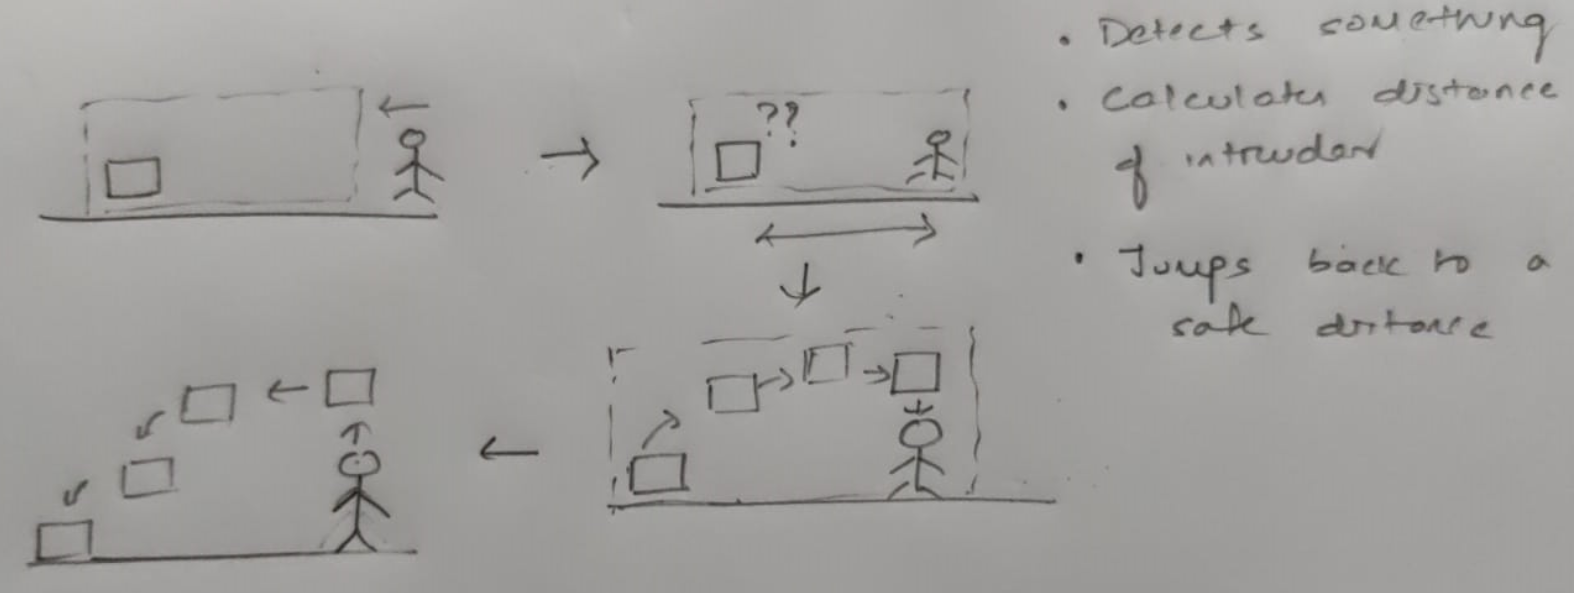 ??
• Detects something
• Calculates distance
of intruder
• Jumps back to a
safe distance